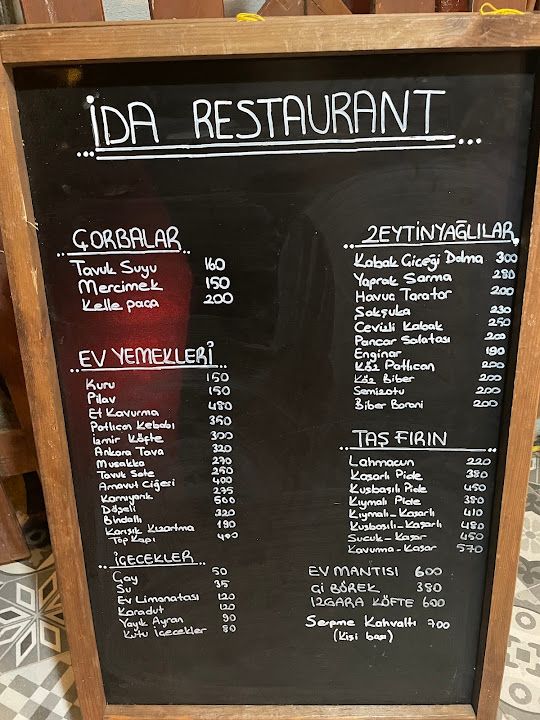 İDA RESTAURANT
ÇORBALAR
Tavuk Suyu 160
Mercimek 150
Kelle paça 200
EV YEMEKLERİ
Kuru 150
Pilav 150
Et Kavurma 480
Patlıcan Kebabı 350
İzmir Köfte 300
Ankara Tava 320
Musakka 270
Tavuk Sote 250
Arnavut Ciğeri 400
Karnıyarık 275
Döşeli 500
Bindallı 320
Karışık Kızartma 190
Top Kapı 400
İÇECEKLER
Çay 50
Su 35
Ev Limonatası 120
Karadut 120
Yayık Ayran 90
Kutu İçecekler 80
ZEYTİNYAĞLILAR
Kabak Çiçeği Dolma 300
Yaprak Sarma 280
Havuç Tarator 200
Şakşuka 230
Cevizli Kabak 250
Pancar Salatası 200
Enginar 190
Köz Patlıcan 200
Köz Biber 200
Semizotu 200
Biber Borani 200
TAŞ FIRIN
Lahmacun 220
Kaşarlı Pide 380
Kuşbaşılı Pide 450
Kıymalı Pide 380
Kıymalı-Kaşarlı 410
Kuşbaşılı-Kaşarlı 480
Sucuk-Kaşar 450
Kavurma-Kaşar 570
EV MANTISI 600
Çİ BÖREK 380
IZGARA KÖFTE 600
Serpme Kahvaltı 700
(Kişi başı)